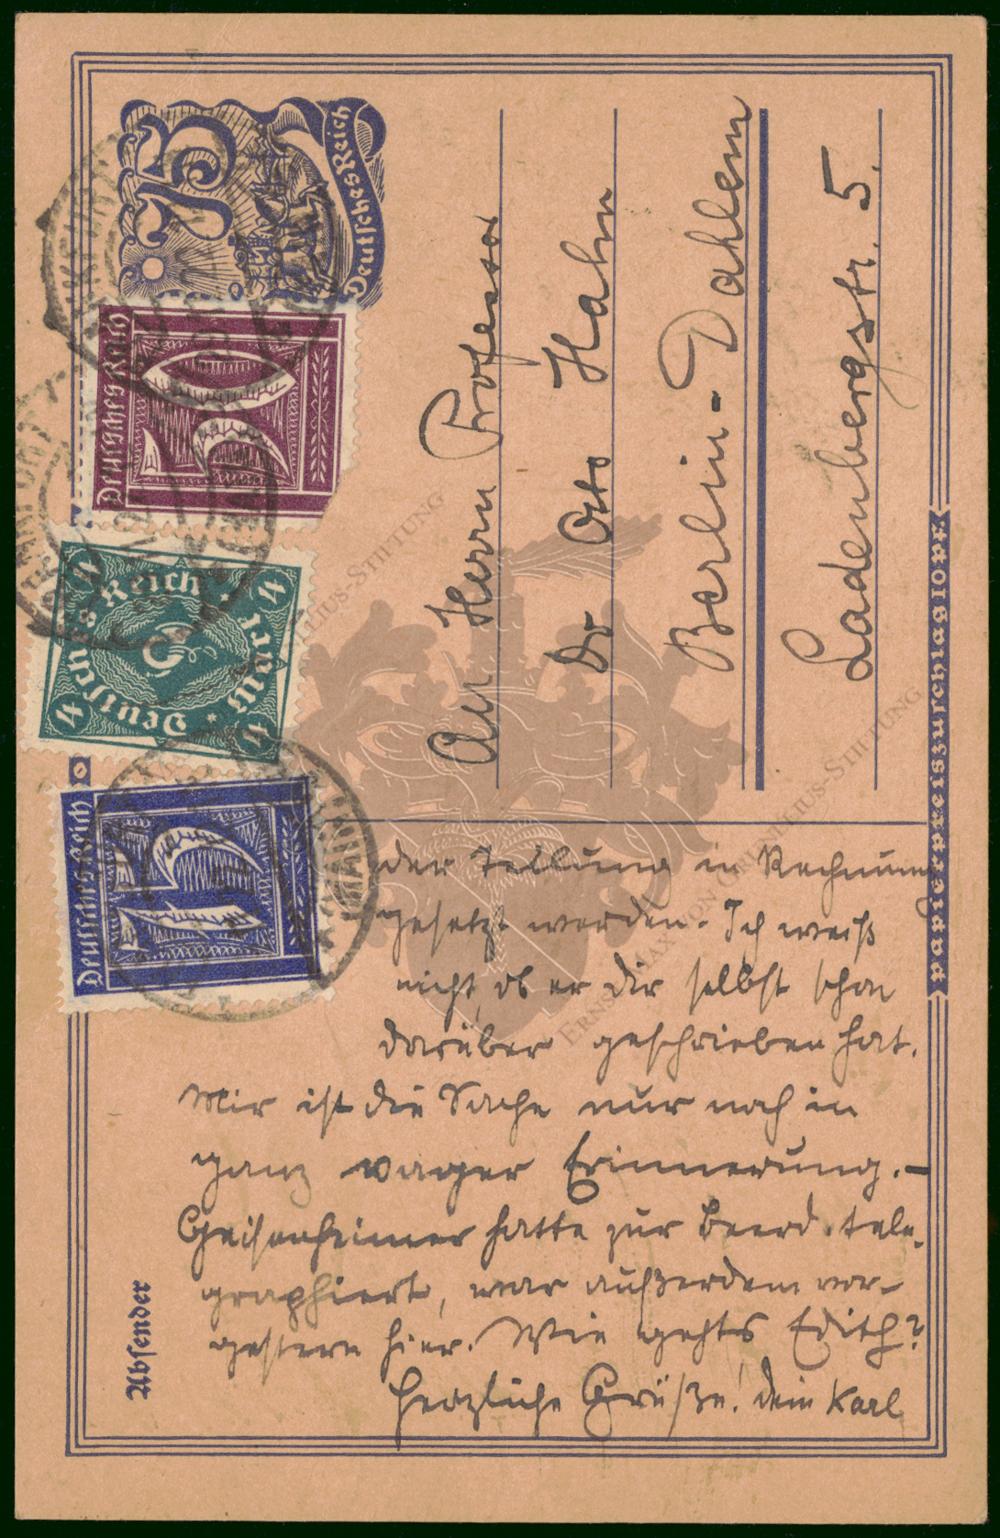 75
Deutsches Reich
Deutsches Reich
50
Deutsches Reich
4
4
4
4
Mark
Deutsches Reich
15
An Herrn Professor
Dr Otto Hahn
Berlin-Dahlem
Ladenbergstr. 5.
der Teilung in Rechnung
gesetzt werden. Ich weiß
nicht, ob er Dir selbst schon
darüber geschrieben hat.
Mir ist die Sache nur noch in
ganz vager Erinnerung.-
Geisenheimer hatte zur Beerd. tele-
graphiert, war außerdem vor-
gestern hier. Wie gehts Edith?
Herzliche Grüße! Dein Karl
Absender
Papierpreiszuschlag 10 Pf.
Ernst Max von Grunelius-Stiftung